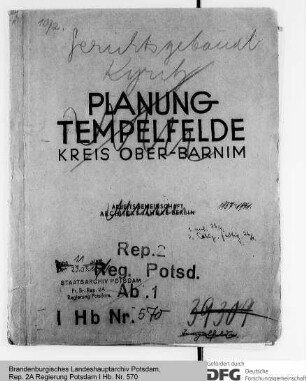 Gerichtsgebäude
Kyritz
PLANUNG-
TEMPELFELDE
KREIS OBER-BARNIM
ARBEITSGEMEINSCHAFT
Rep. 2
Reg. Potsd.
STAATSARCHIV POTSDAM
Pr. Br. Rep. 2A
Regierung Potsdam
Ab. 1
I Hb Nr. 570
39309
Brandenburgisches Landeshauptarchiv Potsdam,
Rep. 2A Regierung Potsdam I Hb. Nr. 570
gefördert durch
DFG Deutsche
Forschungsgemeinschaft